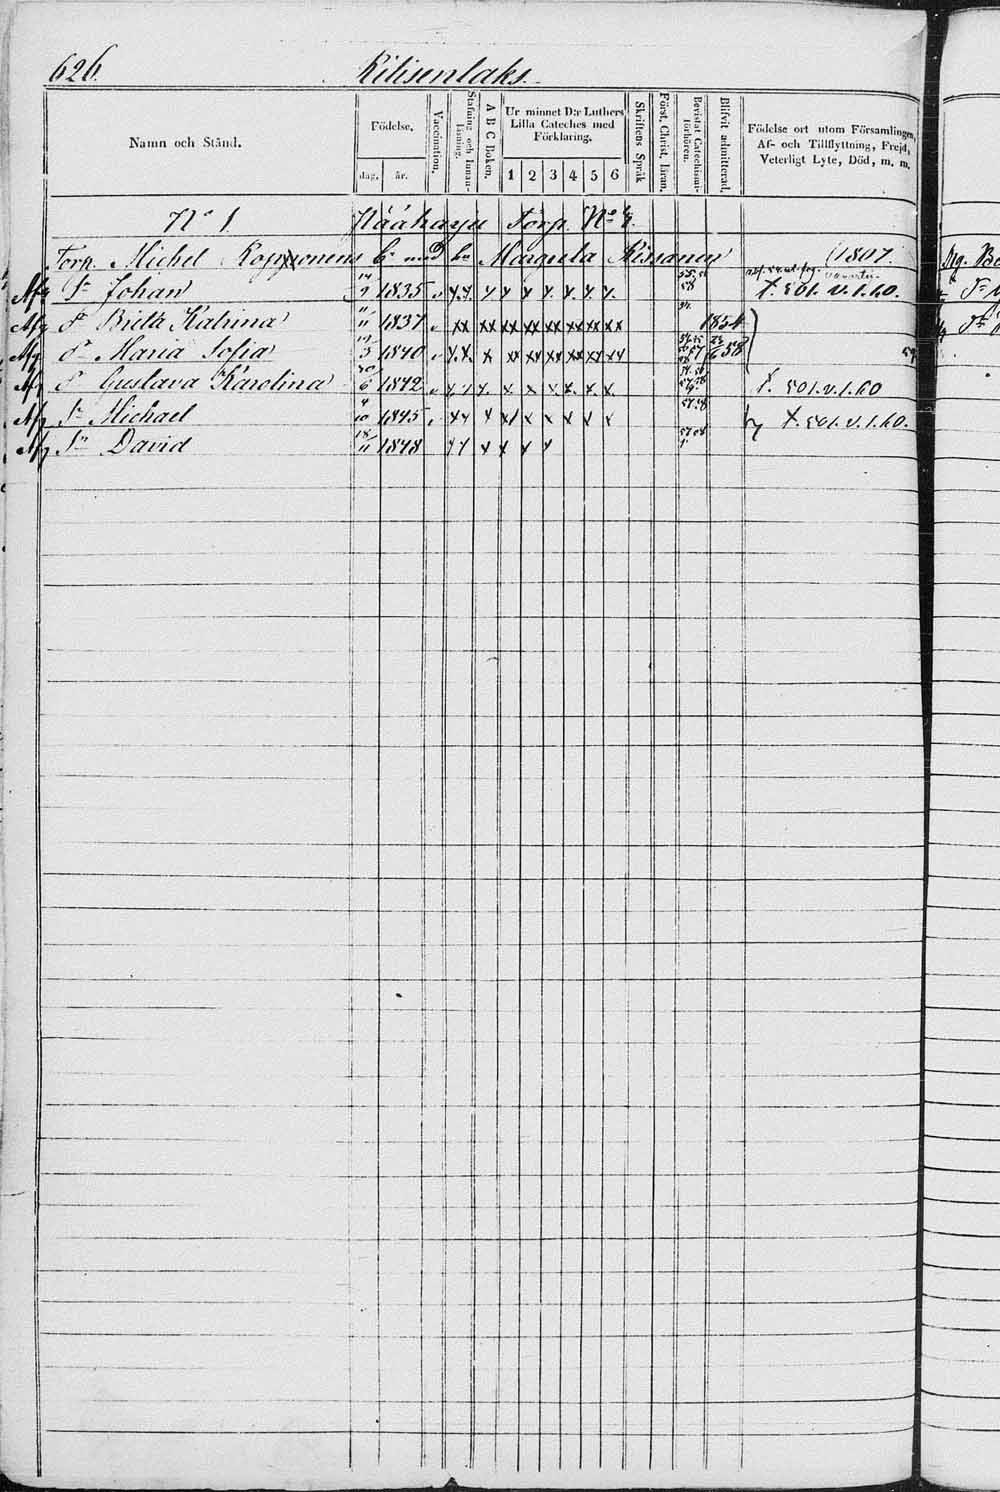 626. Kilisenlaks.
Namn och Stånd. Födelse. dag. år. Vaccination. Stafning och Innanläsning. A B C Boken. Ur minnet D:r Luthers Lilla Cateches med Förklaring. 1 2 3 4 5 6 Skriftens Språk Först. Christ. läran. Bevistat Catechismiförhören. Blifvit admitterad. Födelse ort utom Församlingen, Af- och Tillflyttning, Frejd, Veterligt Lyte, Död, m. m.
N:o 1 Torp. N:o
Torp. Michel 1807.
Sn Johan 14/9 1835 x x x x x x x x x 501. v. 1. 60.
Dr Brita Katrina 11/11 1837 xx xx xx xx xx xx xx xx 1854
Dr Maria Sofia 19/3 1840 x x x xx xx xx xx xx xx 23/6 58
Dr Gustava Karolina 30/6 1842 x x x x x x x x x 501. v. 1. 60
Sn Michael 4/10 1845 x x x x x x x x x 501. v. 1. 60.
Sn David 18/11 1848 x x x x x x